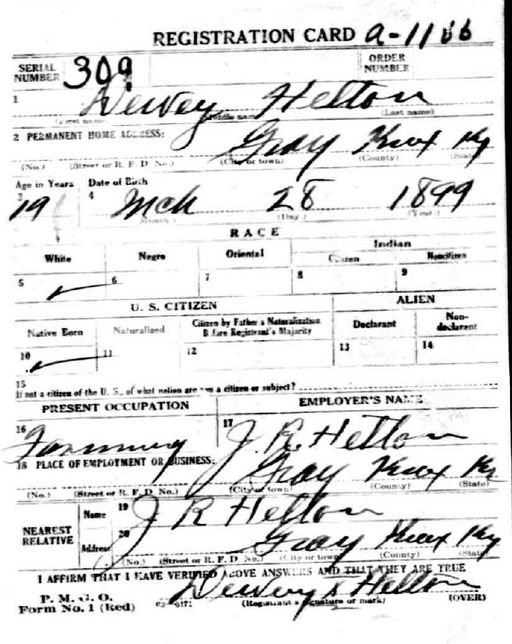 REGISTRATION CARD A-1166
SERIAL NUMBER 309 ORDER NUMBER
1 Dewey Helton
(First name) (Middle name) (Last name)
2 PERMANENT HOME ADDRESS: Gray Knox Ky
(No.) (Street or R. F. D. No.) (City or town) (County) (State)
Age in Years Date of Birth
3 19 4 Mch 28 1899
(Month.) (Day.) (Year.)
RACE
White Negro Oriental Indian
Citizen Noncitizen
5 ✓ 6 7 8 9
U. S. CITIZEN ALIEN
Native Born Naturalized Citizen by Father's Naturalization Before Registrant's Majority Declarant Non-declarant
10 ✓ 11 12 13 14
15
If not a citizen of the U. S., of what nation are you a citizen or subject?
PRESENT OCCUPATION EMPLOYER'S NAME
16 Farming 17 J. R. Helton
18 PLACE OF EMPLOYMENT OR BUSINESS: Gray Knox Ky
(No.) (Street or R. F. D. No.) (City or town) (County) (State)
NEAREST RELATIVE Name 19 J R Helton
Address 20 Gray Knox Ky
(No.) (Street or R. F. D. No.) (City or town) (County) (State)
I AFFIRM THAT I HAVE VERIFIED ABOVE ANSWERS AND THAT THEY ARE TRUE
P. M. G. O.
Form No. 1 (Red) Dewey x Helton
(Registrant's signature or mark) (OVER)